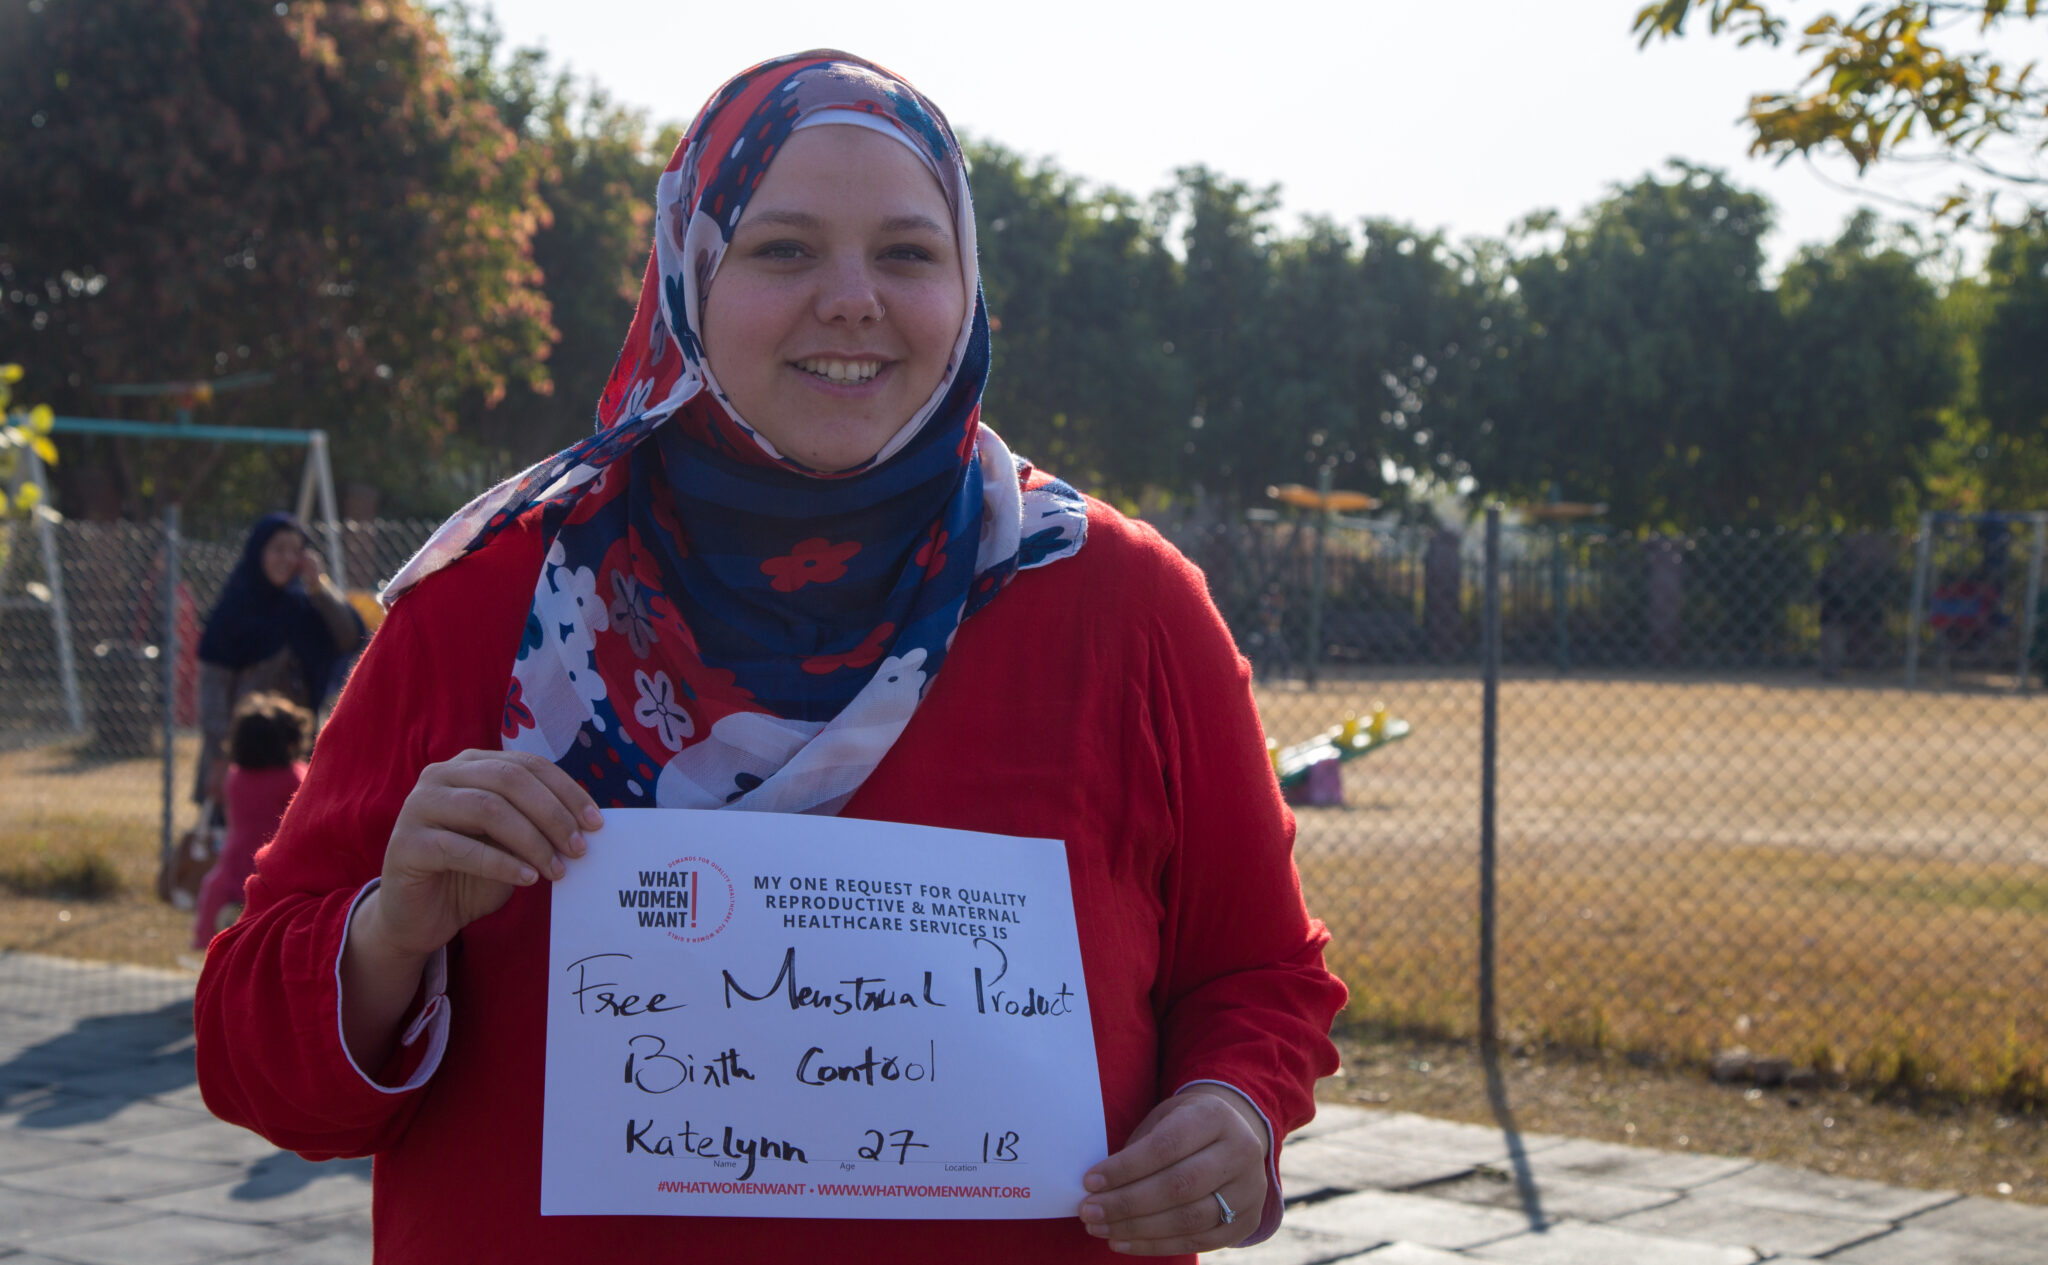 DEMANDS FOR QUALITY HEALTHCARE FOR WOMEN & GIRLS
WHAT
WOMEN
WANT!
MY ONE REQUEST FOR QUALITY
REPRODUCTIVE & MATERNAL
HEALTHCARE SERVICES IS
Free Menstrual Product
Birth Control
Katelynn 27
Name Age Location
#WHATWOMENWANT • WWW.WHATWOMENWANT.ORG